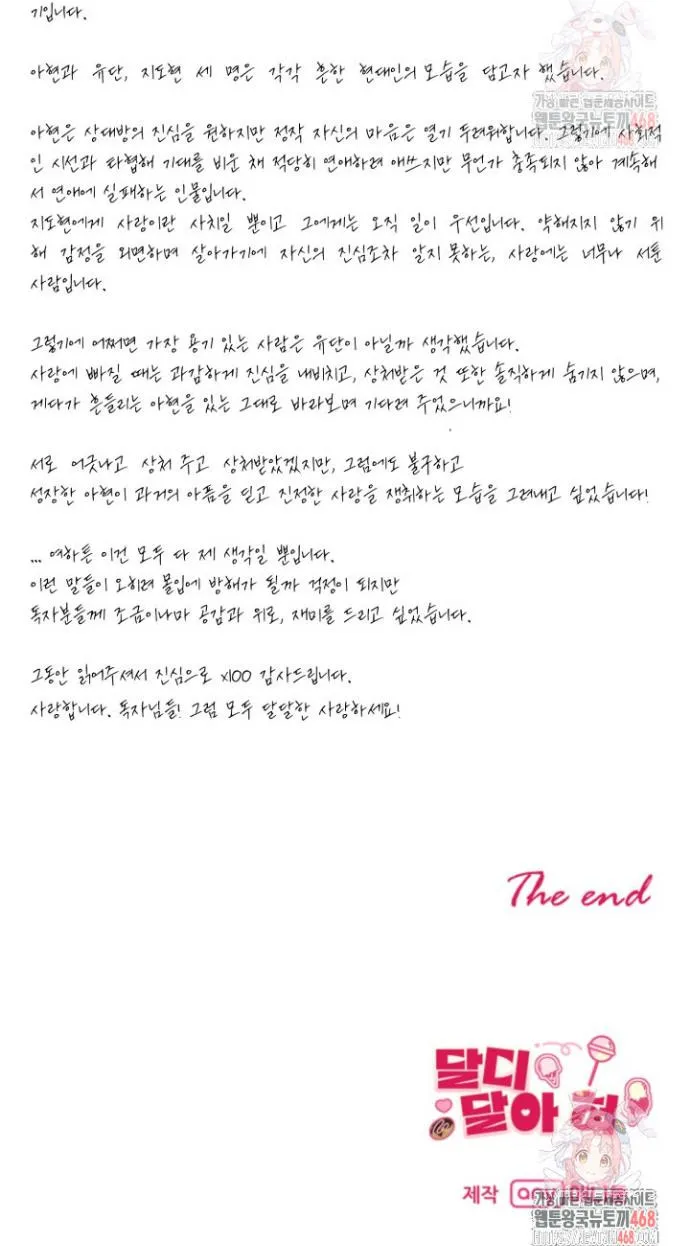 기입니다.
아현과 유단, 지도현 세 명은 각각 흔한 현대인의 모습을 담고자 했습니다.
아현은 상대방의 진심을 원하지만 정작 자신의 마음은 열기 두려워합니다. 그렇기에 사회적
인 시선과 타협해 기대를 비운 채 적당히 연애하려 애쓰지만 무언가 충족되지 않아 계속해
서 연애에 실패하는 인물입니다.
지도현에게 사랑이란 사치일 뿐이고 그에게는 오직 일이 우선입니다. 약해지지 않기 위
해 감정을 외면하며 살아가기에 자신의 진심조차 알지 못하는, 사랑에는 너무나 서툰
사람입니다.
그렇기에 어쩌면 가장 용기 있는 사람은 유단이 아닐까 생각했습니다.
사랑에 빠질 때는 과감하게 진심을 내비치고, 상처받은 것 또한 솔직하게 숨기지 않으며,
게다가 흔들리는 아현을 있는 그대로 바라보며 기다려 주었으니까요!
서로 어긋나고 상처 주고 상처받았겠지만, 그럼에도 불구하고
성장한 아현이 과거의 아픔을 딛고 진정한 사랑을 쟁취하는 모습을 그려내고 싶었습니다!
... 여하튼 이건 모두 다 제 생각일 뿐입니다.
이런 말들이 오히려 몰입에 방해가 될까 걱정이 되지만
독자분들께 조금이나마 공감과 위로, 재미를 드리고 싶었습니다.
그동안 읽어주셔서 진심으로 x100 감사드립니다.
사랑합니다. 독자님들! 그럼 모두 달달한 사랑하세요!
The end
달디
달아
제작
가장 빠른 웹툰제공사이트
웹툰왕국뉴토끼468
가장 빠른 웹툰제공사이트
웹툰왕국뉴토끼468